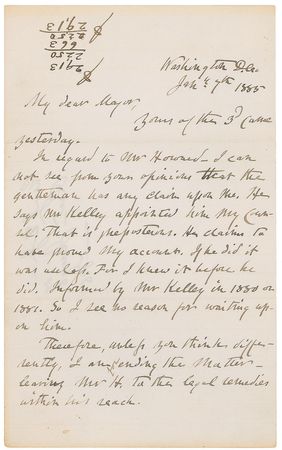 2913
2250
663
2250
2913
Washington D.C.
Jany 7th 1885
My dear Major,
Yours of the 3d came
yesterday.
In regard to Mr Howard – I can
not see from your opinions that the
gentleman has any claim upon me. He
says Mr Kelley appointed him my Coun-
sel. That is preposterous. He claims to
have found my account. If he did it
was useless. For I knew it before he
did. Informed by Mr Kelley in 1880 or
1881. So I see no reason for waiting up-
on him.
Therefore, unless you think diffe-
rently, I am ending the matter –
leaving Mr H. to the legal remedies
within his reach.